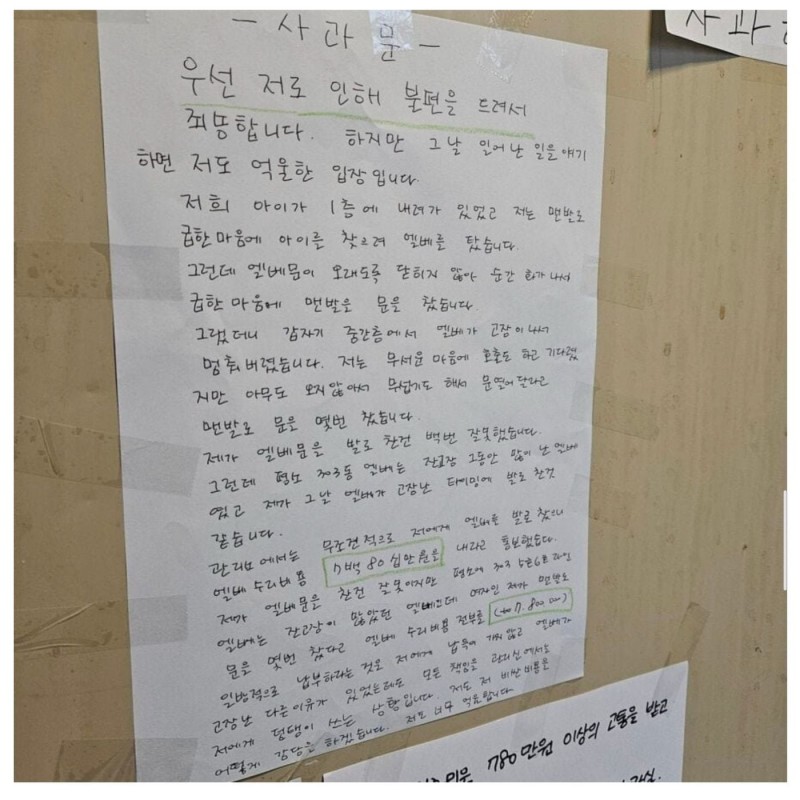 - 사 과 문 -
우선 저로 인해 불편을 드려서
죄송합니다. 하지만 그날 일어난 일을 얘기
하면 저도 억울한 입장입니다.
저희 아이가 1층에 내려가 있었고 저는 맨발로
급한마음에 아이를 찾으려 엘베를 탔습니다.
그런데 엘베문이 오래도록 닫히지 않아 순간 화가나서
급한마음에 맨발로 문을 찼습니다.
그랬더니 갑자기 중간층에서 엘베가 고장이나서
멈춰버렸습니다. 저는 무서운마음에 호출도 하고 기다렸
지만 아무도 오지않아서 무섭기도 해서 문열어달라고
맨발로 문을 몇번 찼습니다.
제가 엘베문을 발로 찬건 백번 잘못했습니다.
그런데 평소 303동 엘베는 잔고장 그동안 많이 난 엘베
였고 제가 그날 엘베가 고장난 타이밍에 발로 찬것
같습니다.
관리소에서는 무조건적으로 저에게 엘베를 발로 찼으니
엘베 수리비용 7백80십만원을 내라고 통보했습니다.
제가 엘베문을 찬건 잘못이지만 평소에 303 5호6호라인
엘베는 잔고장이 많았던 엘베인데 여자인 제가 맨발로
문을 몇번 찼다고 엘베 수리비용 전부를 7,800,000)
일방적으로 납부하라는것은 저에게 납득이 가지 않고 엘베가
고장난 다른이유가 있었는데도 모든 책임을 관리실에서도
저에게 덤탱이 쓰는 상황입니다. 저도 저 비싼비용을
어떻게 감당을 하겠습니다. 저도 너무 억울합니다
사과
780만원 이상의 고통을 받고